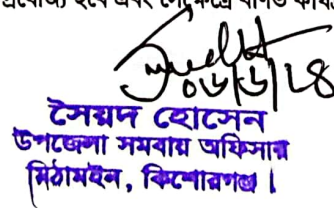 প্রযোজ্য হবে এবং সেক্ষেত্রে
০৬/৬/২৪
সৈয়দ হোসেন
উপজেলা সমবায় অফিসার
মিঠামইন, কিশোরগঞ্জ।